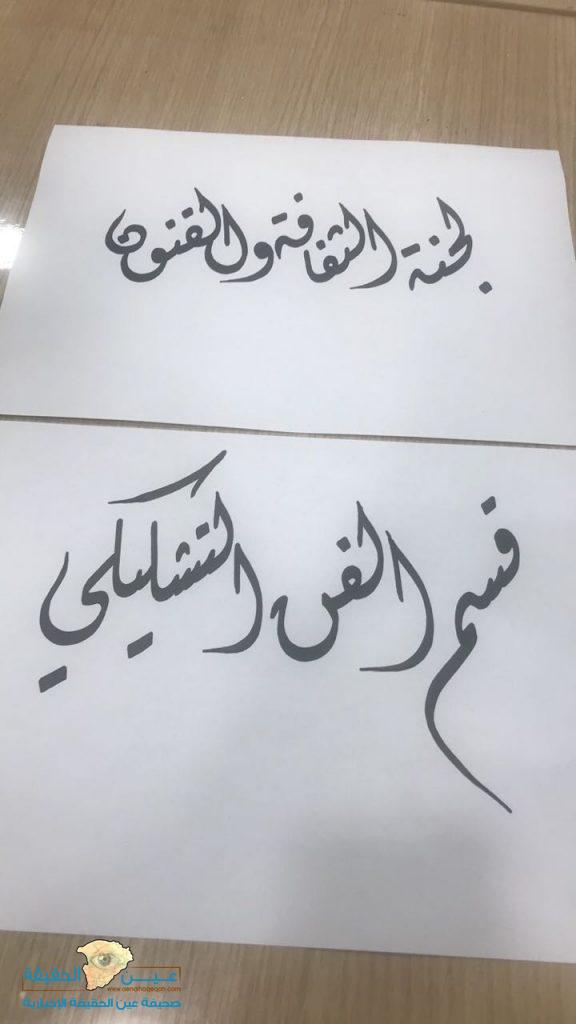 لجنة الثقافة والفنون
قسم الفن التشكيلي
عين الحقيقة
صحيفة عين الحقيقة الإخبارية